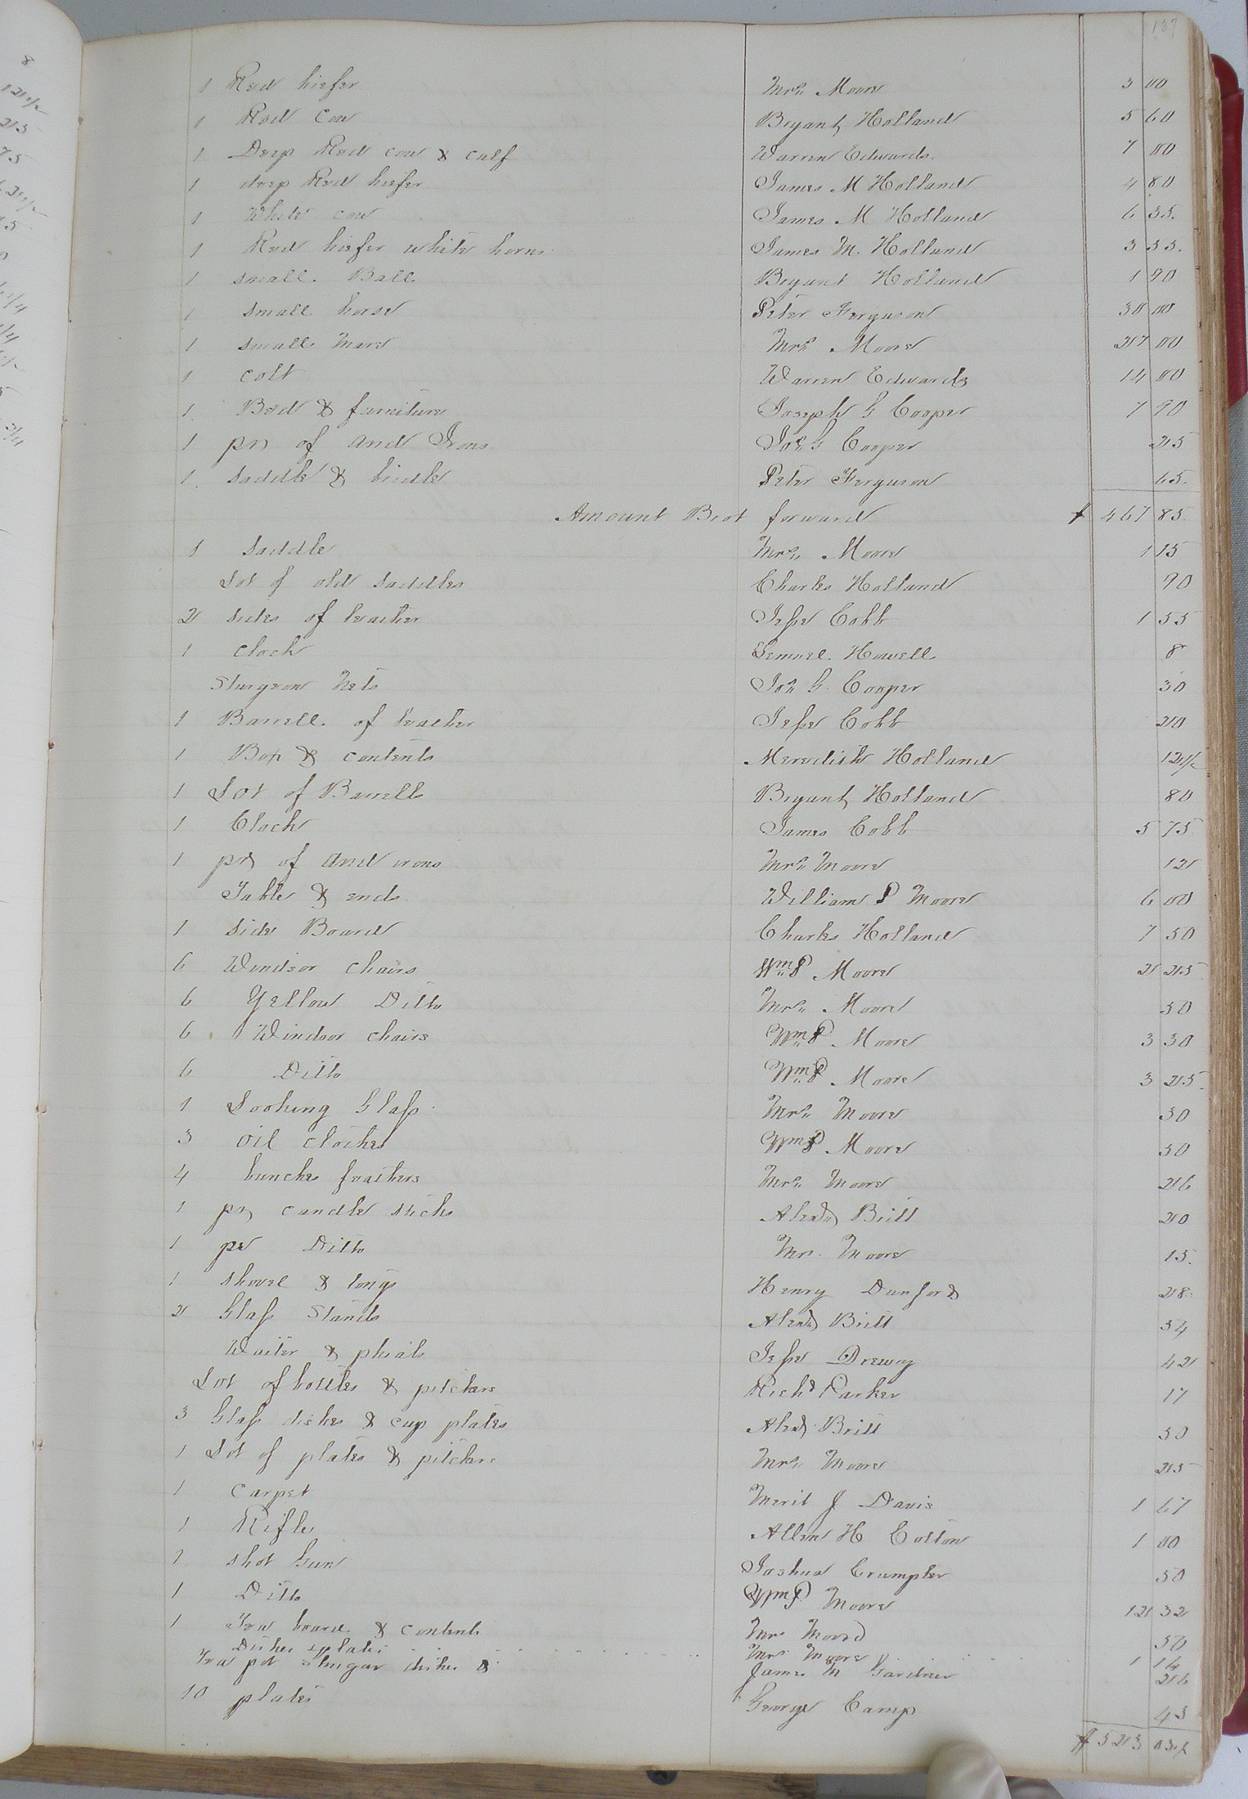 187
1 Red hiefer Mrs. Moore 3 00
1 Red Cow Bryant Holland 5 60
1 Deep Red cow & calf Warren Edwards 7 00
1 deep Red hiefer James M Holland 4 80
1 White cow James M Holland 6 35
1 Red hiefer white horns James M. Holland 3 55
1 small Ball Bryant Holland 1 90
1 small horse Peter Ferguson 30 00
1 small Mare Mrs. Moore 27 00
1 colt Warren Edwards 14 00
1 Bed & furniture Joseph G Cooper 7 90
1 pr of and Irons Jos G Cooper 25
1 saddle & bridle Peter Ferguson 65
Amount Brot forward $ 467 85
1 saddle Mrs. Moore 1 15
Lot of old saddles Charles Holland 90
2 sides of leather Jesse Cobb 1 55
1 clock Lemuel Howell 8
Sturgeon Nets Jos G. Cooper 30
1 Barrell of leather Jesse Cobb 20
1 Box & contents Meredith Holland 12 1/2
1 Lot of Barrells Bryant Holland 80
1 Clock James Cobb 5 75
1 pr of and irons Mrs. Moore 12
Table & ends William P Moore 6 00
1 side Board Charles Holland 7 50
6 Windsor chairs Wm P Moore 2 25
6 Yellow Ditto Mrs. Moore 50
6 Windsor chairs Wm P. Moore 3 30
6 Ditto Wm P. Moore 3 25
1 Looking Glass Mrs. Moore 30
3 oil cloths Wm P. Moore 50
4 bunches feathers Mrs. Moore 26
1 pr candle sticks Alexd Britt 20
1 pr Ditto Mrs. Moore 15
1 shovel & tongs Henry Dunford 28
2 Glass Stands Alexd Britt 54
Waiter & phials Jesse Drewry 42
Lot of bottles & pitchers Richd Parker 17
3 Glass dishes & cup plates Alexd Britt 50
1 Lot of plates & pitchers Mrs. Moore 25
1 Carpet Merit J Davis 1 67
1 Rifle Allen H Cotton 1 00
1 shot Gun Joshua Crumpler 50
1 Ditto Wm P. Moore 12 32
1 Tea board & contents Mrs Moore 50
Dishes & plates Mrs Moore 1 14
Tea pot shugar dishes & James M Gardner 26
10 plates George Camp 43
$ 523 03 1/2